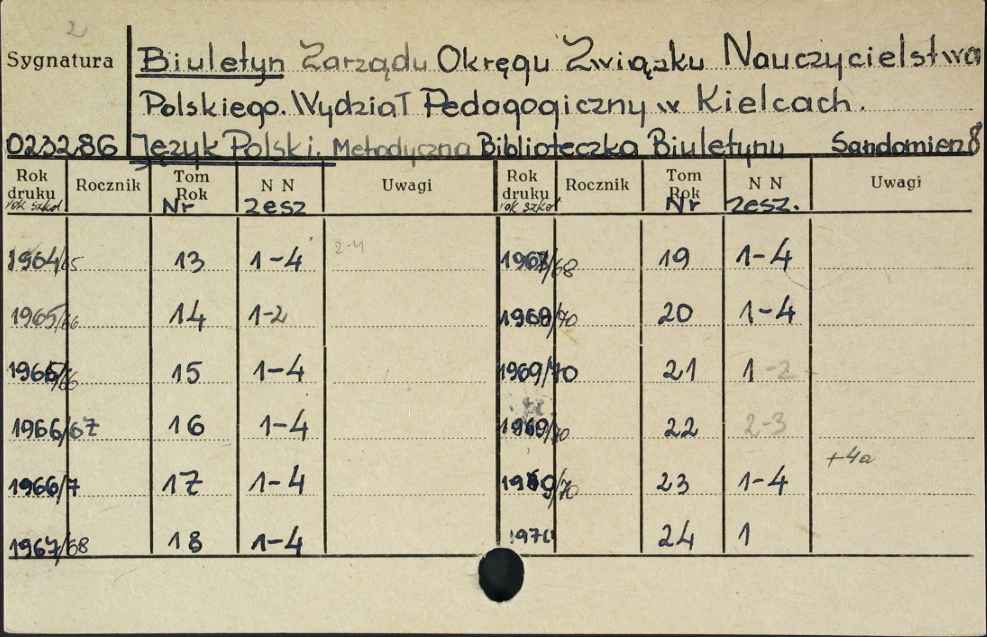 2
Sygnatura Biuletyn Zarządu Okręgu Związku Nauczycielstwa
Polskiego. Wydział Pedagogiczny w Kielcach.
023286 Język Polski. Metodyczna Biblioteczka Biuletynu Sandomierz
Rok druku Rocznik Tom Rok N N Uwagi Rok druku Rocznik Tom Rok N N Uwagi
rok szkol Nr zesz rok szkol Nr zesz.
1964/65 13 1-4 2-4 1967/68 19 1-4
1965/66 14 1-2 1969/70 20 1-4
1965/66 15 1-4 1969/70 21 1-2
1966/67 16 1-4 1969/70 22 2-3
1966/7 17 1-4 1969/70 23 1-4 +4a
1967/68 18 1-4 1970 24 1